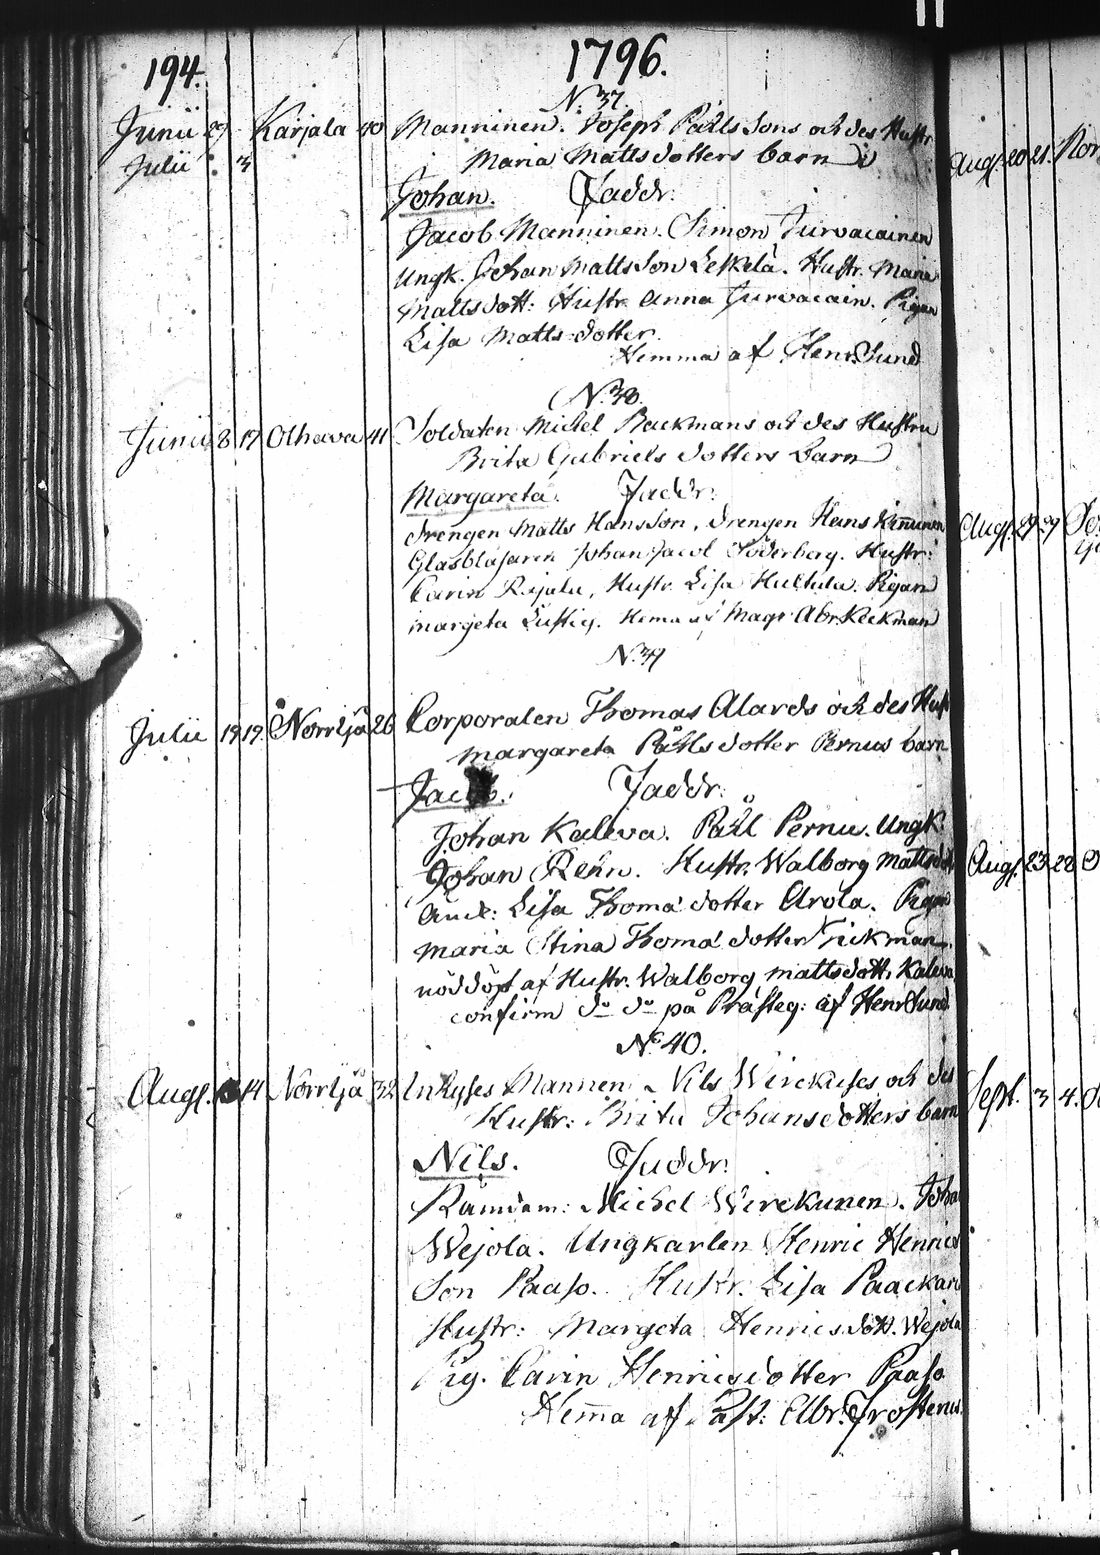 194.
1796.
N. 37.
Junii 29 Karjala 40 Manninen. Joseph Påhls Sons och des Hustr
Julii 3 Maria Matts dotters barn
Johan. Faddr:
Jacob Manninen. Simon Turvacainen
Ungk. Johan Matts Son Leskelä. Hustr. Maria
Matts dott: Hustr Anna Turvacain. Pigan
Lisa Matts dotter.
Hemma af Henr. Sund
N. 38.
Junii 8 17 Olhava 41 Soldaten Michel Backmans och des Hustru
Brita Gabriels dotters barn
Margareta. Faddr:
drengen Matts Hansson, drengen Hans Kinnunen
Glasblåsaren Johan Jacob Söderberg. Hustr:
Carin Rajala, Hustr. Lisa Huttula. Pigan
margeta Lustig. Hema af Mag: Abr. Keckman
N. 39
Julii 19 19. Norr Ijå 26 Corporalen Thomas Alards och des Hust
margareta Påhls dotter Pernus barn
Jacob. Faddr:
Johan Kaleva. Påhl Pernu. Ungk.
Johan Rehn. Hustr. Walborg matts dott
Enck: Lisa Thomæ dotter Arola. Pigan
maria Stina Thomæ dotter Frickman.
nöddöpt af Hustr. Walborg mattsdott. Kaleva
confirm do do på Prästeg: af Henr Sund
No 40.
Aug. 14 Norr Ijå 32 Inhyses Mannen Nils Wirckuses och des
Hustr: Brita Johans dotters barn
Nils. Faddr:
Nämdem: Michel Wirckunen. Joha
Wejola. Ungkarlen Henric Henrics
Son Paaso. Hustr. Lisa Paackari
Hustr: Margeta Henrics dott. Wejola
Pig. Carin Henricsdotter Paaso
Hem̅a af Past: Elbr. Frosterus.
Aug. 20 21. Nor
Aug. 29
Aug. 23 28
Sept. 3 4.